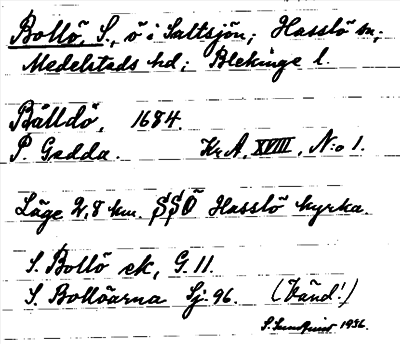 Bollö, S., ö i Saltsjön; Hasslö sn;
Medelstads hd; Blekinge l.
Bälldö, 1684.
P. Gedda. Kr A, XVIII, N:o 1.
Läge 2,8 km. SSÖ Hasslö kyrka.
S. Bollö ek, G. 11.
S. Bollöarna Sj. 96. (Vänd!)
S. Sundquist 1936.